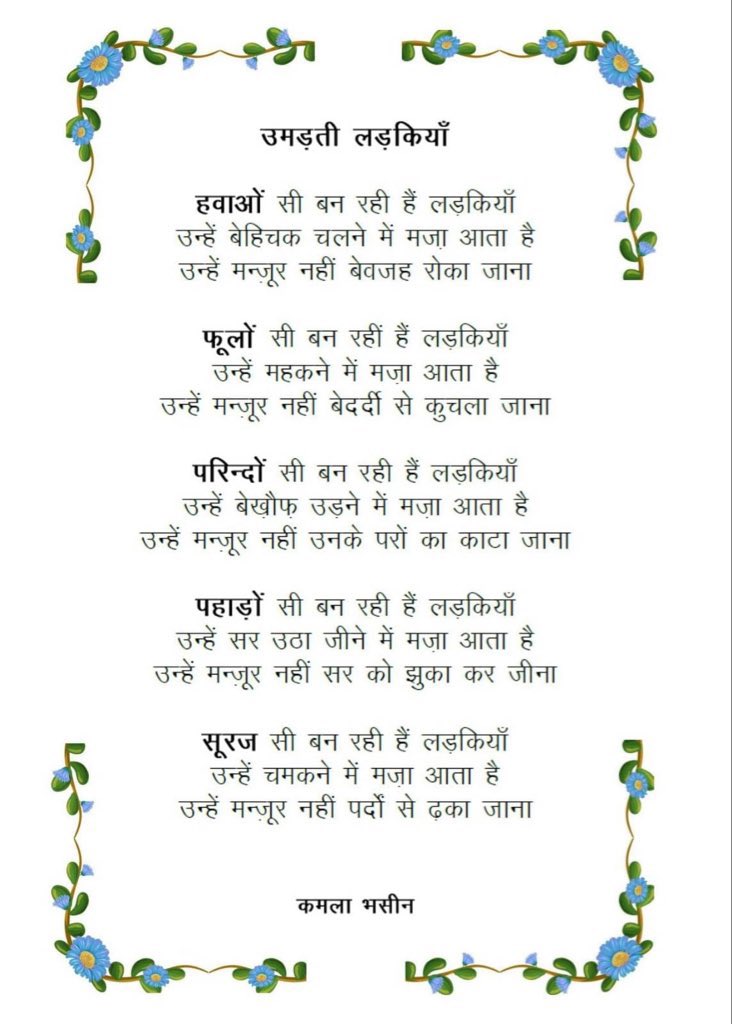 उमड़ती लड़कियाँ
हवाओं सी बन रही हैं लड़कियाँ
उन्हें बेहिचक चलने में मज़ा आता है
उन्हें मन्ज़ूर नहीं बेवजह रोका जाना
फूलों सी बन रहीं हैं लड़कियाँ
उन्हें महकने में मज़ा आता है
उन्हें मन्ज़ूर नहीं बेदर्दी से कुचला जाना
परिन्दों सी बन रही हैं लड़कियाँ
उन्हें बेख़ौफ़ उड़ने में मज़ा आता है
उन्हें मन्ज़ूर नहीं उनके परों का काटा जाना
पहाड़ों सी बन रही हैं लड़कियाँ
उन्हें सर उठा जीने में मज़ा आता है
उन्हें मन्ज़ूर नहीं सर को झुका कर जीना
सूरज सी बन रही हैं लड़कियाँ
उन्हें चमकने में मज़ा आता है
उन्हें मन्ज़ूर नहीं पर्दों से ढ़का जाना
कमला भसीन